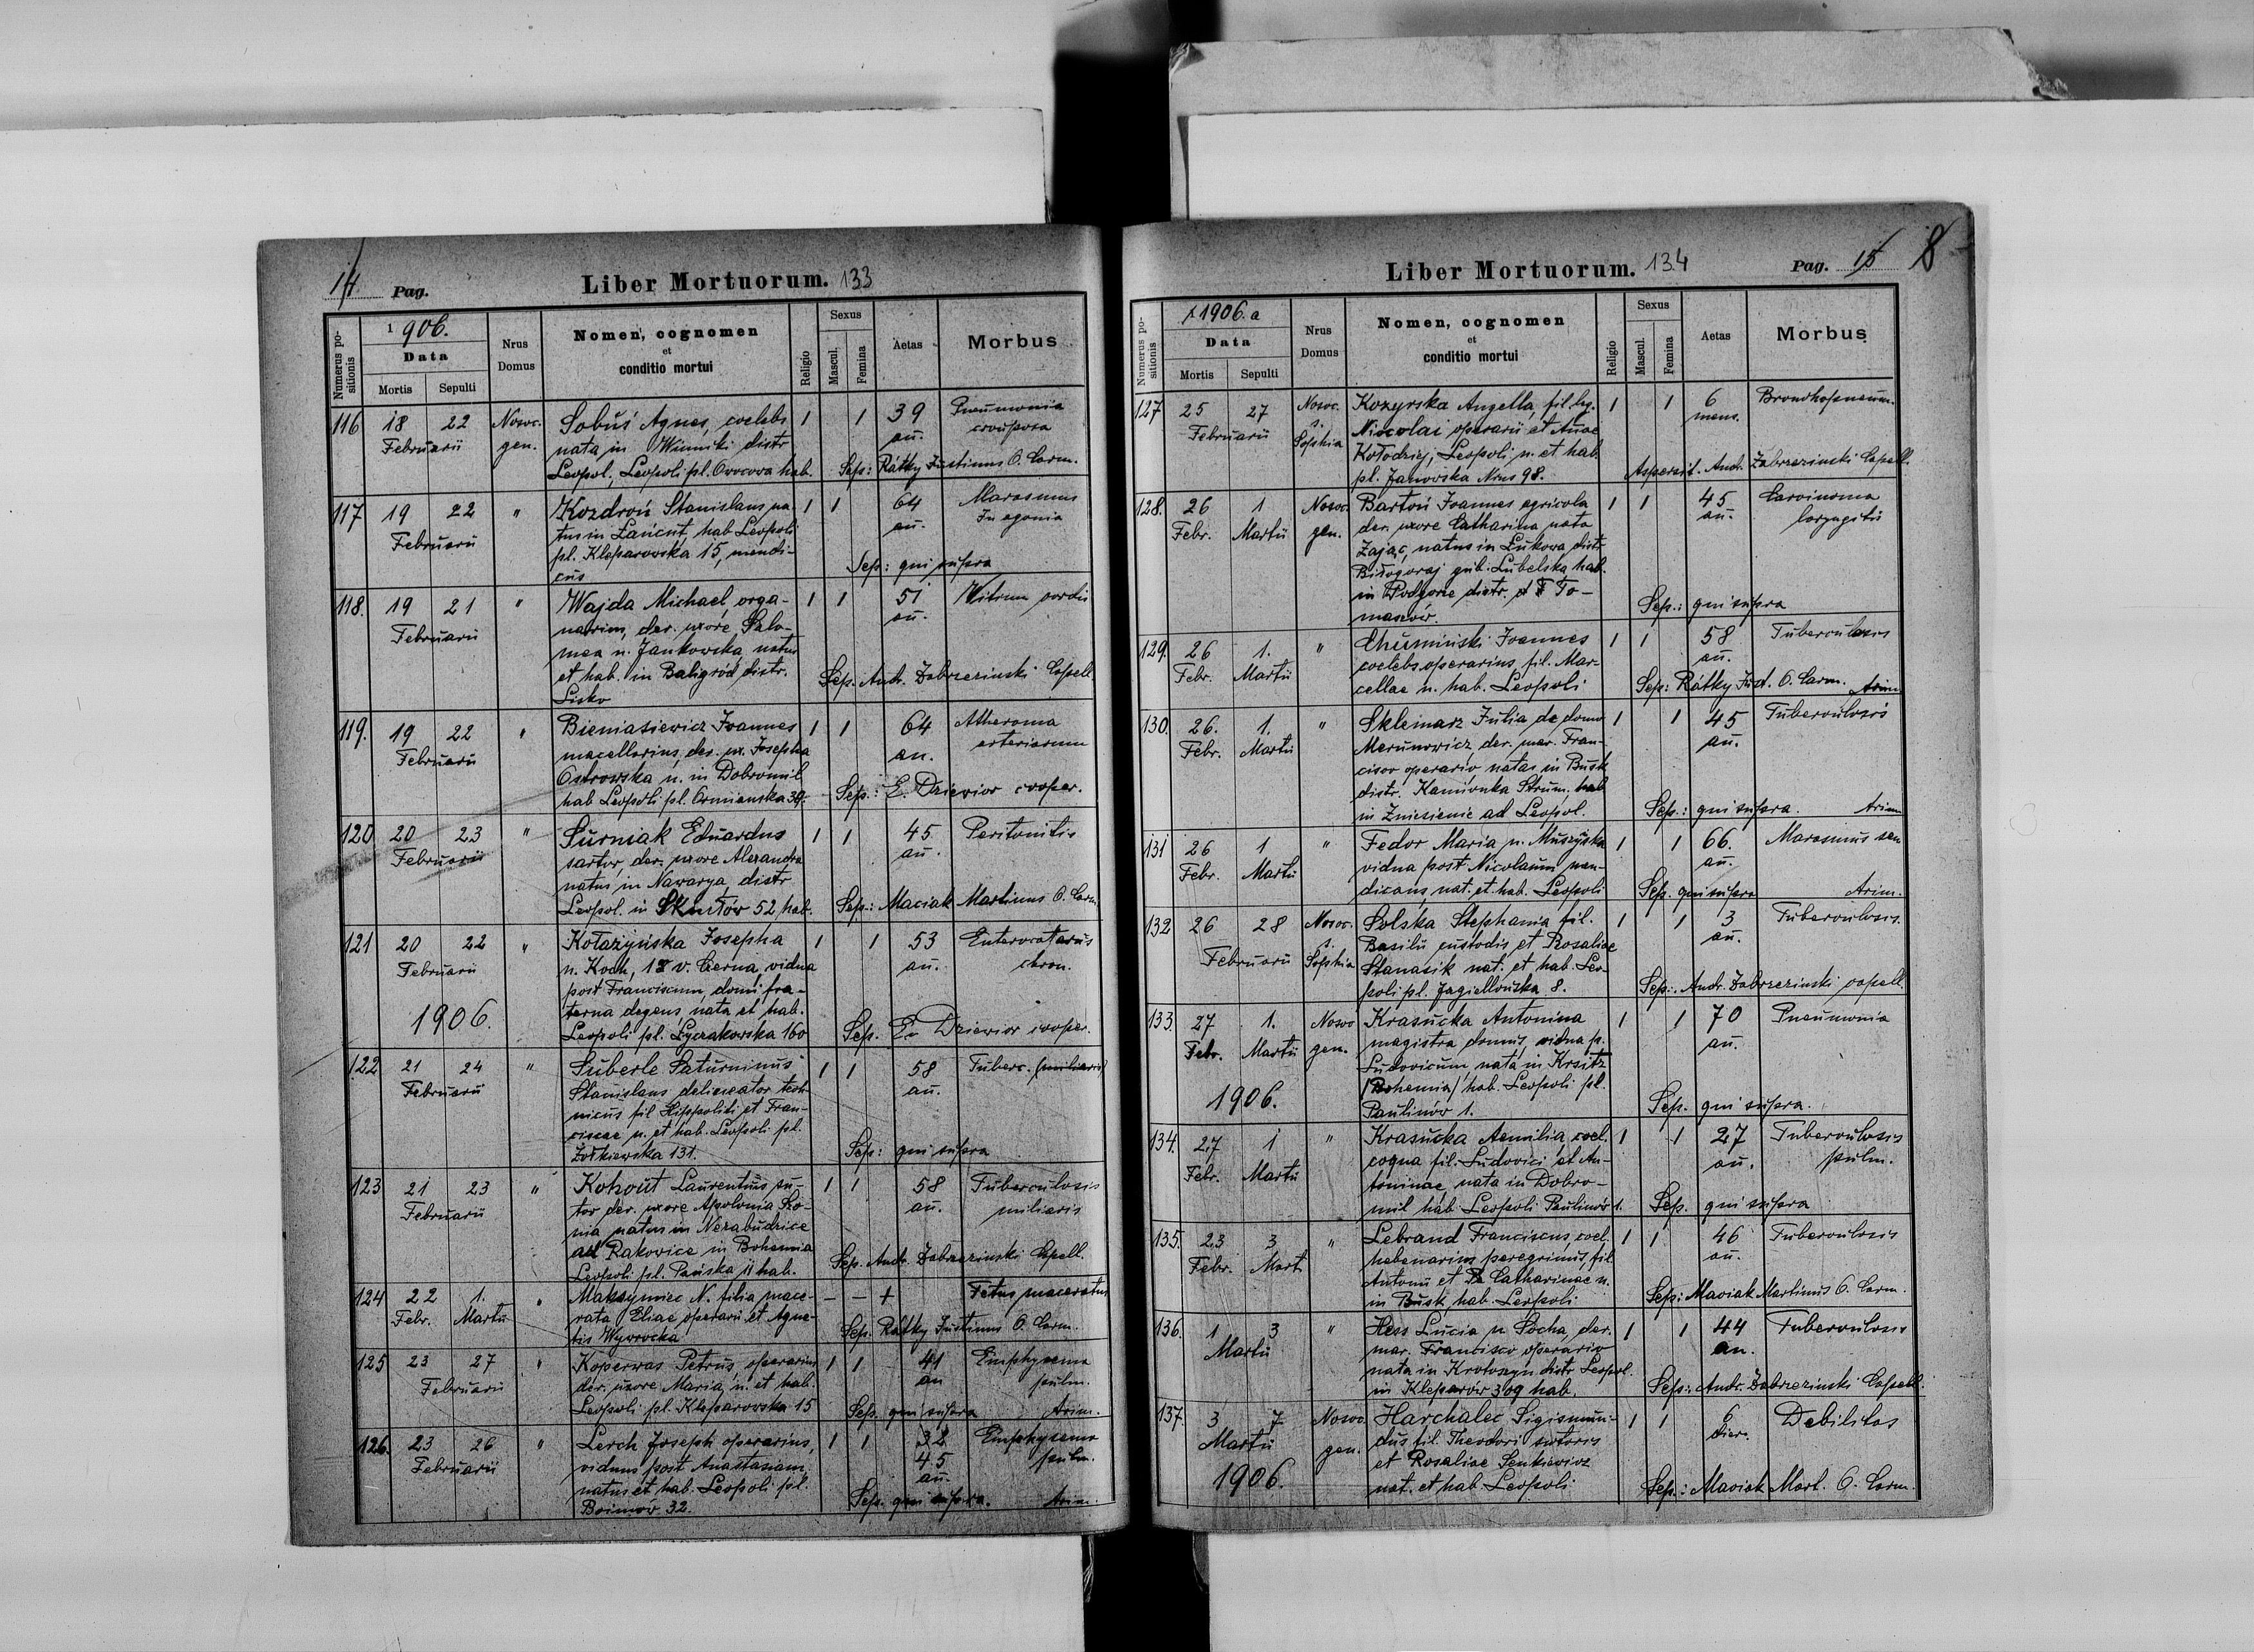 14 Pag.
Liber Mortuorum. 133
Numerus positionis
1906.
Data
Mortis
Sepulti
Nrus Domus
Nomen, cognomen
et
conditio mortui
Religio
Sexus
Mascul.
Femina
Aetas
Morbus
116 18 22 Nosoc. Sobuś Agnes, coelebs 1 1 39 Pneumonia
Februarii gen. nata in Winniki distr. an. crouposa
Leopol., Leopoli pl. Owocowa hab. Sep: Rátky Justinus O. Carm.
117 19 22 " Kozdroń Stanislaus na- 1 1 64 Marasmus
Februarii tus in Łańcut, hab Leopoli an. In agonia
pl. Kleparowska 15, mendi- Sep: qui supra
cus
118. 19 21 " Wajda Michael, orga- 1 1 51 Vitium cordis
Februarii narius, der. uxore Salo- an.
mea n. Jankowska, natus
et hab. in Baligród distr. Sep. Andr. Zabrzezinski Capell.
Lisko
119. 19 22 " Bieniasiewicz Joannes 1 1 64 Atheroma
Februarii macellarius, der. ux. Josepha an. arteriarum
Ostrowska n. in Dobromil
hab Leopoli pl. Ormianska 39. Sep.: E. Dziewior cooper.
120 20 23 " Surniak Eduardus 1 1 45 Peritonitis
Februarii sartor, der. uxore Alexandra an.
natus in Nawarya, distr
Leopol. in Sknilów 52 hab. Sep.: Maciak Martinus O. Carm.
121 20 22 " Kołażyńska Josepha 1 1 53 Enterocatarus
Februarii n. Koch, 1º v. Czerna, vidua an. chron.
post Franciscum, domi fra-
1906. terna degens, nata et hab.
Leopoli pl. Łyczakowska 160 Sep. E. Dziewior cooper.
122 21 24 " Suberle Saturninus 1 1 58 Tuberc. (miliaris)
Februarii Stanislaus delineator tech- an.
nicus fil Hippoliti et Fran-
ciscae n. et hab. Leopoli pl. Sep: qui supra
Żołkiewska 131.
123 21 23 " Kohout Laurentius su- 1 1 58 Tuberculosis
Februarii tor der. uxore Apolonia an. miliaris
natus in Nezabudzice
ad Rakovice in Bohemia Sep. Andr. Zabrzezinski Capell.
Leopoli pl. Pańska 11 hab.
124 22 1. " Maksymiec N. filia mace- – – + Fetus maceratus
Febr. Martii rata Eliae operarii et Agne-
tis Wywrocka Sep. Rátky Justinus O. Carm.
125 23 27 " Koperwas Petrus, operarius 1 1 41 Emphysema
Februarii der. uxore Maria, n. et hab. an pulm.
Leopoli pl. Kleparowska 15 Sep. qui supra Arim.
126. 23 26 " Lerch Joseph operarius, 1 1 32 Emphysema
Februarii viduus post Anastasiam, 45 pulm.
natus et hab. Leopoli pl. an.
Boimów 32. Sep. qui supra. Arim.
Liber Mortuorum. 134
Pag. 15 8
Numerus positionis
1906. a
Data
Mortis
Sepulti
Nrus Domus
Nomen, cognomen
et
conditio mortui
Religio
Sexus
Mascul.
Femina
Aetas
Morbus
127 25 27 Nosoc. Kozyrska Angella, fil. leg. 1 1 6 Bronchopneum.
Februarii s. Sophia Nicolai operarii et Annae mens.
Kołodziej, Leopoli n. et hab.
pl. Janowska Nrus 98. Aspersit. Andr. Zabrzezinski Capell.
128. 26 1 Nosoc. Bartoń Joannes agricola 1 1 45 Carcinoma
Febr. Martii gen. der. uxore Catharina nata an. laryngitis
Zając, natus in Łukowa, distr
Biłogoraj gub. Lubelska hab.
in Podgorie distr. To- Sep.: qui supra
maszów.
129. 26 1. " Chuminski Joannes 1 1 58 Tuberculosis
Febr. Martii coelebs operarius, fil. Mar- an.
cellae n. hab. Leopoli Sep: Rátky Just. O. Carm. Arim
130. 26. 1. " Skleinarz Julia de domo 1 1 45 Tuberculosis
Febr. Martii Merunowicz, der. mar. Fran- an.
cisco operario, natas in Busk
distr. Kamionka Strum. hab
in Zniesienie ad Leopol. Sep.: qui supra. Arim
131 26 1 " Fedor Maria n. Muszyńska 1 1 66. Marasmus sen
Febr. Martii vidua post Nicolaum men- an.
dicans, nat. et. hab. Leopoli Sep. qui supra Arim.
132. 26 28 Nosoc. Solska Stephania fil. 1 1 3 Tuberculosis.
Februarii s. Sophia Basilii custodis et Rosaliae an.
Stanasik nat. et hab. Leo-
poli pl. Jagiellońska 8. Sep.: Andr. Zabrzezinski capell.
133. 27 1. Nosoc Krasucka Antonina 1 1 70 Pneumonia
Febr. Martii gen. magistra domus, vidua p. an.
Ludovicum, nata in Krsitz
1906. (Bohemia) hab. Leopoli pl.
Paulinów 1. Sep. qui supra.
134. 27 1 " Krasucka Aemilia, coel. 1 1 27 Tuberculosis
Febr. Martii coqua fil. Ludovici et An- an. pulm.
toninae, nata in Dobro-
mil hab. Leopoli Paulinów 1. Sep. qui supra
135. 23 3 " Lebrand Franciscus, coel. 1 1 46 Tuberculosis
Febr. Marti habenarius peregrinus, fil an.
Antonii et Catharinae n.
in Busk, hab. Leopoli Sep: Maciak Martinus O. Carm.
136. 1 3 " Hess Lucia n Socha, der. 1 1 44 Tuberculosis
Martii mar. Francisco operario an.
nata in Krotoszyn distr Leopol.
in Kleparów 309 hab. Sep.: Andr. Zabrzezinski Capell.
137 3 7 Nosoc. Harchalec Sigismun- 1 1 6 Debilitas
Martii gen. dus fil. Theodori sutoris dier.
et Rosaliae Senkiewicz
1906. nat. et hab Leopoli Sep.: Maciak Mart. O. Carm.